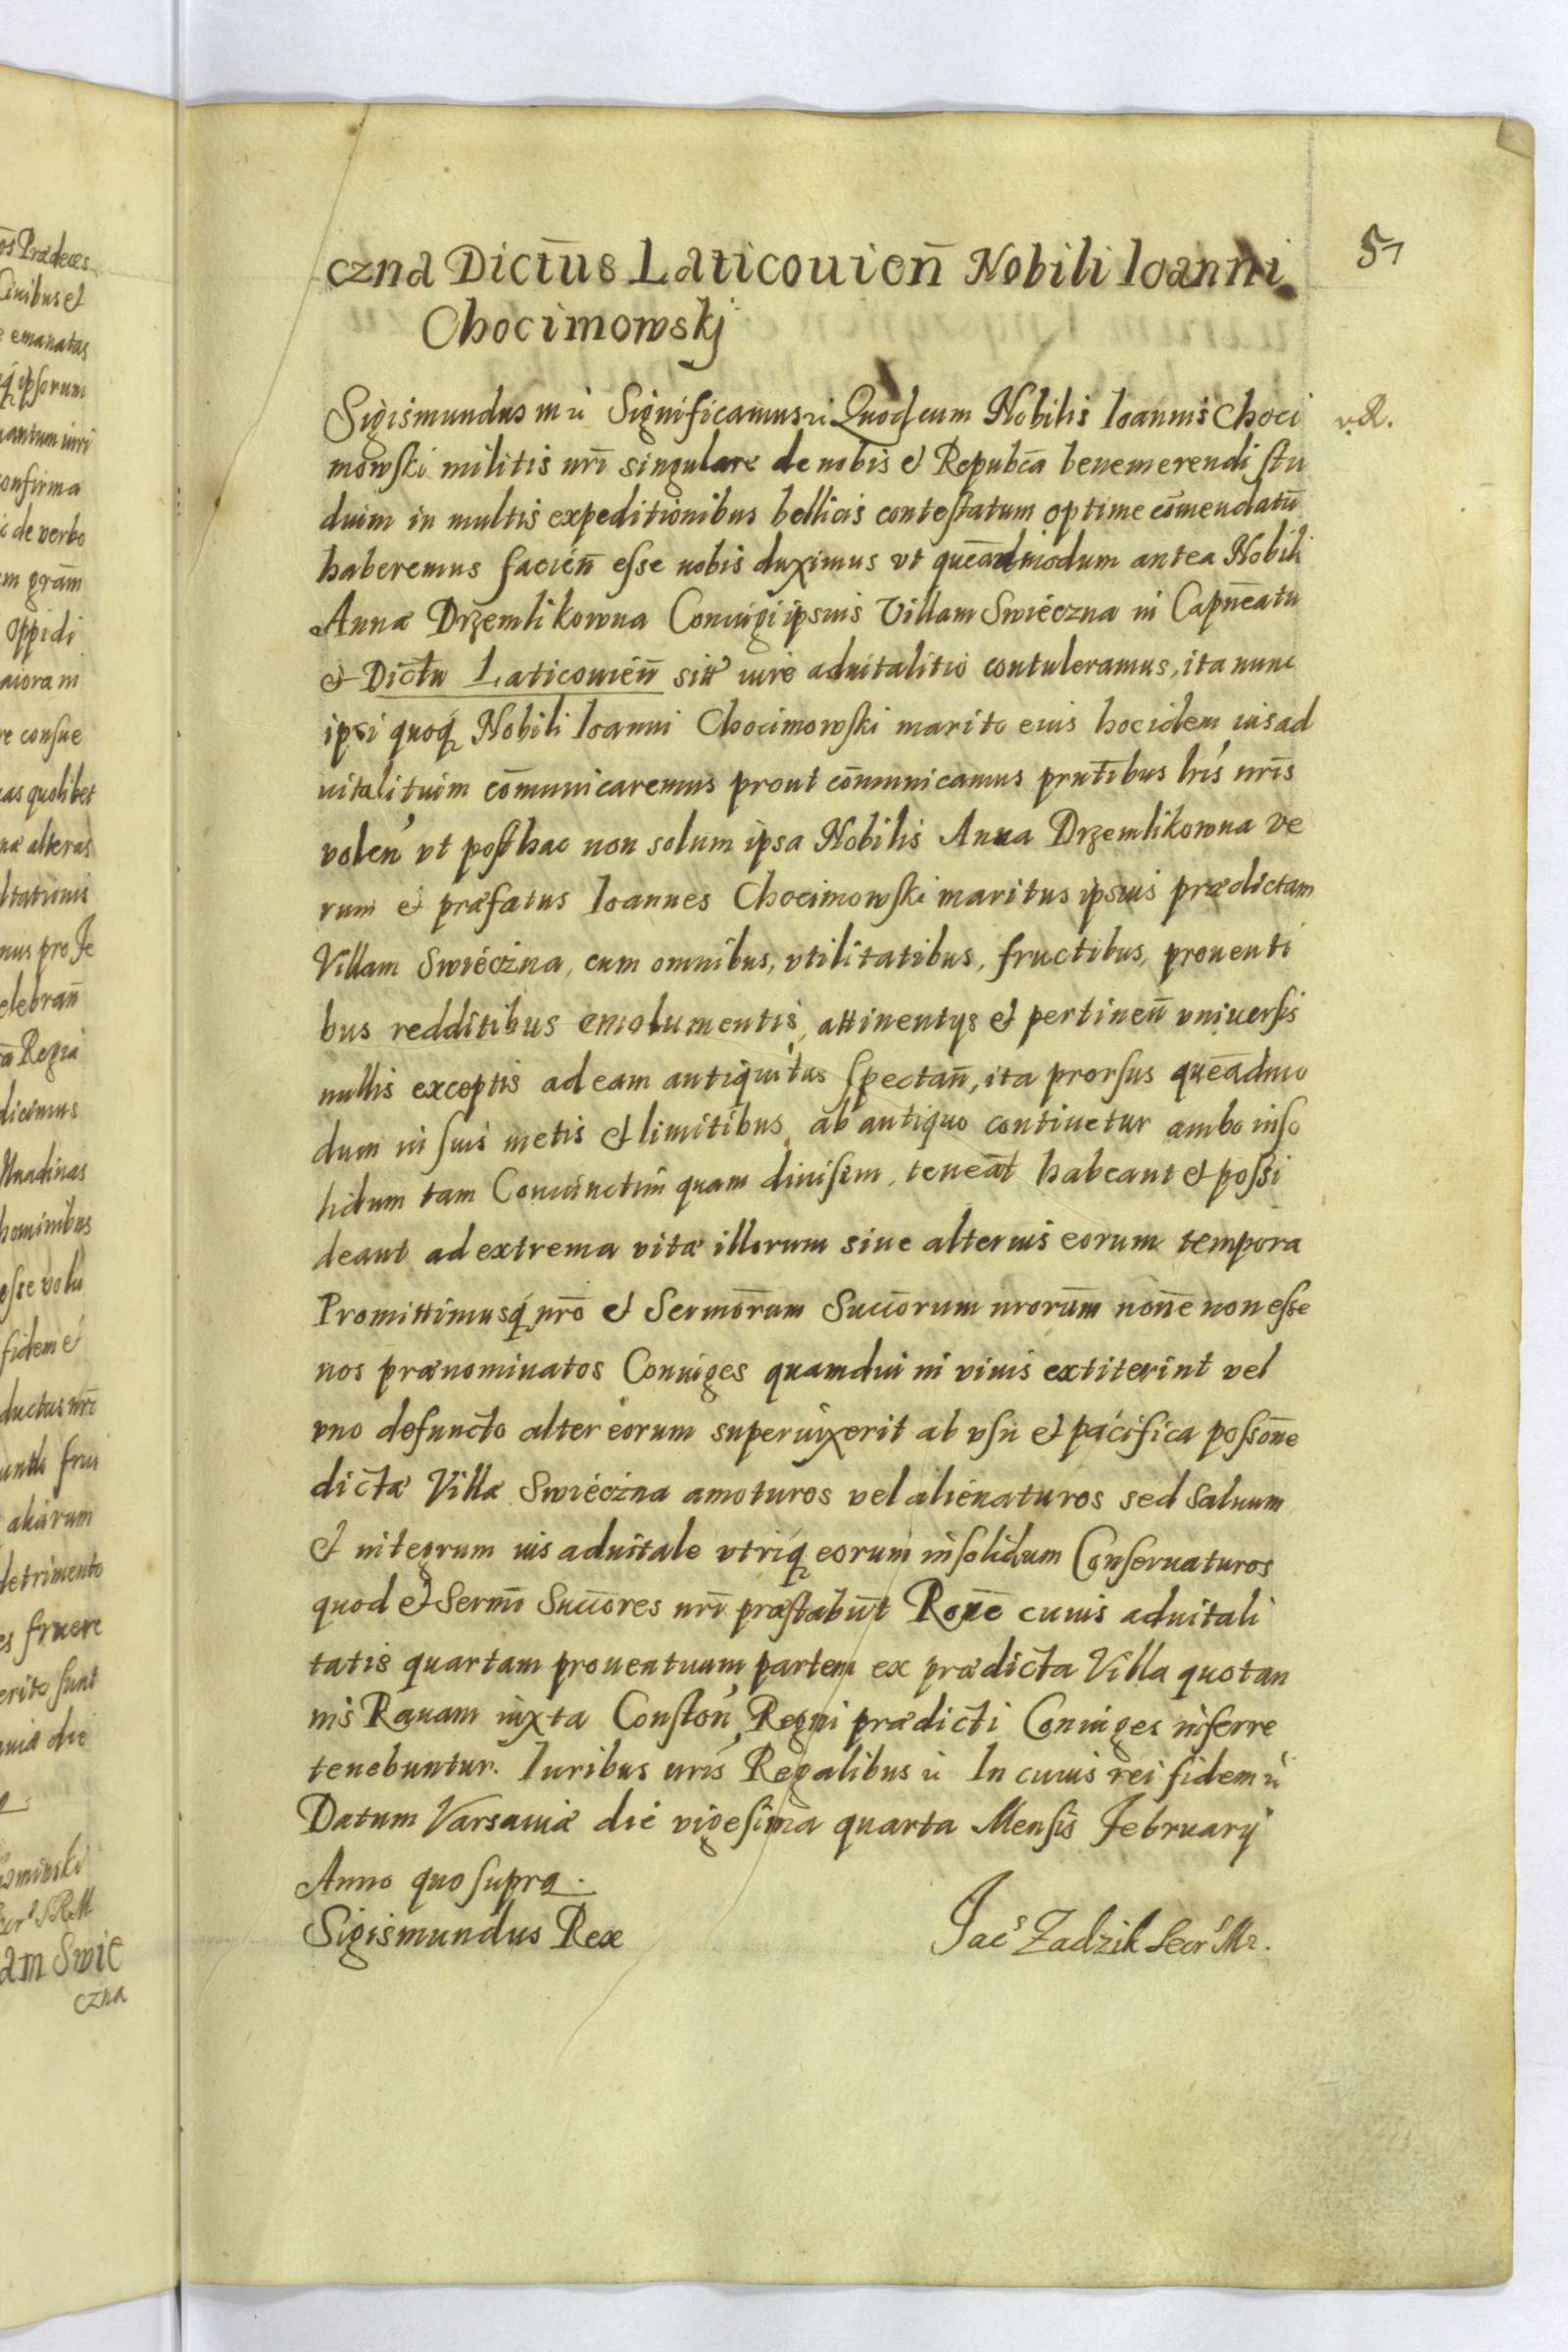 os Prædeces
Ciuibus et
e emanatas
q ipsorum
uantum iuri
onfirma
i de verbo
m grām
Oppidi
aiora m
re consue
as quolibet
næ alteras
ltationis
mus pro Fe
elebran̄
a Regia
dicimus
Nundinas
hominibus
esse volu
fidem e
ductus nrī
untli frui
aliarum
detrimento
es fruere
erito sunt
mia die
am Swie
czna
57
czna Dictūs Laticouien̄ Nobili Ioanni
Chocimowskj
Sigismundus m ii Significamus ii Quod cum Nobilis Ioannis Choci
v.R.
mowski militis nrī singulare de nobis et Repubcā benemerendi stu
duim in multis expeditionibus bellicis contestatum optime cōmendatū
haberemus facien̄ esse nobis duximus vt queādmodum antea Nobili
Annæ Drzemlikowna Coniugi ipsuis Villam Swieczna in Capnēatu
et Dictu Laticouien̄ sitt iure aduitalitio contuleramus, ita nunc
ipsi quoq Nobili Ioanni Chocimowski marito euis hoc idem ius ad
uitalituim cōmunicaremus prout cōmunicamus prntībus lrīs nrīs
volen vt posthac non solum ipsa Nobilis Anna Drzemlikowna ve
rum et præfatus Ioannes Chocimowski maritus ipsuis prædictam
Villam Swieczna, cum omnibus, vtilitatibus, fructibus, prouenti
bus redditibus emolumentis, attinentys et pertinen̄ vniuersis
nullis exceptis ad eam antiquitus spectan̄, ita prorsus queādmo
dum in suis metis et limitibus, ab antiquo continetur ambo inso
lidum tam Coniunctim quam diuisim, teneāt habeant et possi
deant ad extrema vitæ illorum siue alterius eorum tempora
Promittimusq nrō et Sermōrum Succōrum nrorūm nōnē non esse
nos prænominatos Coniuges quamdui in viuis extiterint vel
vno defuncto alter eorum superuixerit ab vsu et pacifica possōne
dictæ Villæ Swieczna amoturos vel alienaturos sed saluum
et integrum ius aduitale vtriq eorum insolidum Conseruaturos
quod et Sermī Succōres nrī præstabūt Ronē cuius aduitali
tatis quartam prouentuum partem ex prædicta Villa quotan
nis Rauam iuxta Constōn Regni prædicti Coniuges inferre
tenebuntur. Iuribus nrīs Regalibus ii In cuius rei fidem ii
Datum Varsauiæ die vigesima quarta Mensis February
Anno quo supra.
Sigismundus Rex
Jac^s Zadzik Secr^s Mr.